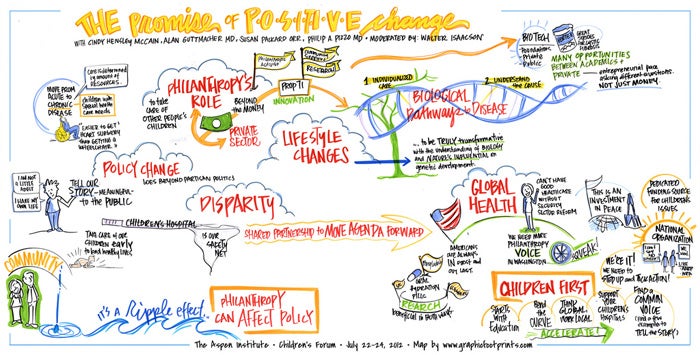 THE PROMISE OF P·O·S·I·T·I·V·E change
WITH CINDY HENSLEY McCAIN, ALAN GUTTMACHER MD, SUSAN PACKARD ORR, PHILIP A. PIZZO MD • MODERATED BY: WALTER ISAACSON
CARE IS DETERMINED
by amount of
RESOURCES.
MOVE FROM
ACUTE to
CHRONIC
DISEASE
children with
special health care
needs
EASIER to GET
HEART SURGERY
than GETTING a
WHEELCHAIR!
PHILANTHROPY'S
ROLE
to take
CARE OF
OTHER PEOPLE'S
CHILDREN
BEYOND
the MONEY
PRIVATE
SECTOR
PHILANTHROPIC
COMMUNITY
RESEARCH
PROP 71
INNOVATION
LIFESTYLE
CHANGES
BIO TECH
Foundations
Private
Public
GREAT
MANY OPPORTUNITIES
BETWEEN ACADEMICS +
PRIVATE
entrepreneurial pace
asking different questions.
NOT JUST MONEY.
1 INDIVIDUALIZED CARE
2 UNDERSTAND the CAUSE
BIOLOGICAL
Pathways to DISEASE
... to be TRULY transformative
with the understanding of BIOLOGY
and NATURE'S INFLUENTIAL on
genetic development.
POLICY CHANGE
GOES BEYOND PARTISAN POLITICS
I AM NOT
A LITTLE
ADULT
I MAKE MY
OWN LIFE
TELL OUR
STORY - MEANINGFUL
to the PUBLIC
DISPARITY
CHILDREN'S HOSPITAL
IS OUR
SAFETY
NET
TAKE CARE OF
OUR CHILDREN early
to lead healthy lives
SHARED PARTNERSHIP to MOVE AGENDA FORWARD
GLOBAL
HEALTH
CAN'T HAVE
GOOD
HEALTHCARE
WITHOUT
SECURITY
SECTOR REFORM
THIS IS AN
INVESTMENT
IN PEACE
DEDICATED
FUNDING SOURCE
FOR CHILDREN'S
ISSUES
NATIONAL
ORGANIZATION
AMERICANS
ARE ALWAYS
IN FRONT
WE NEED MORE
PHILANTHROPY
VOICE
IN WASHINGTON
SQUEAK!
WE'RE IT!
WE NEED TO
STEP UP and TAKE ACTION!
ORAL
REHYDRATION
PILLS
RESEARCH
beneficial in both ways
COMMUNITY
IT'S A Ripple effect...
PHILANTHROPY
CAN AFFECT POLICY
CHILDREN FIRST
STARTS
WITH
Education
BEND
the
CURVE
THINK
GLOBAL
WORK LOCAL
SUPPORT
YOUR
CHILDREN'S
HOSPITALS
FIND A
COMMON
VOICE
(with a few
examples)
to TELL the STORY
ACCELERATE!
The Aspen Institute • Children's Forum • July 22-24, 2012 • Map by www.graphicfootprints.com